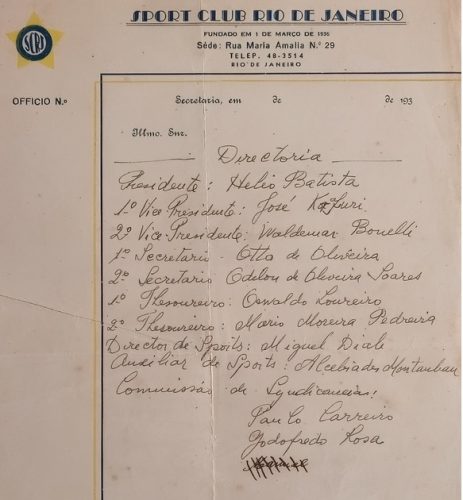 SCRJ
SPORT CLUB RIO DE JANEIRO
FUNDADO EM 1 DE MARÇO DE 1936
Séde: Rua Maria Amalia N.º 29
TELEP. 48-3514
RIO DE JANEIRO
OFFICIO N.º
Secretaria, em de de 193
Illmo. Snr.
Directoria
Presidente: Helio Batista
1º Vice Presidente: José Kfuri
2º Vice Presidente: Waldemar Bonelli
1º Secretario - Otto de Oliveira
2º Secretario Odilon de Oliveira Soares
1º Thesoureiro: Oswaldo Loureiro
2º Thesoureiro: Mario Moreira Pedreira
Director de Sports: Miguel Diale
Auxiliar de Sports: Alcebiades Montauban
Commissão de Syndicancias:
Paulo Carreiro
Godofredo Rosa